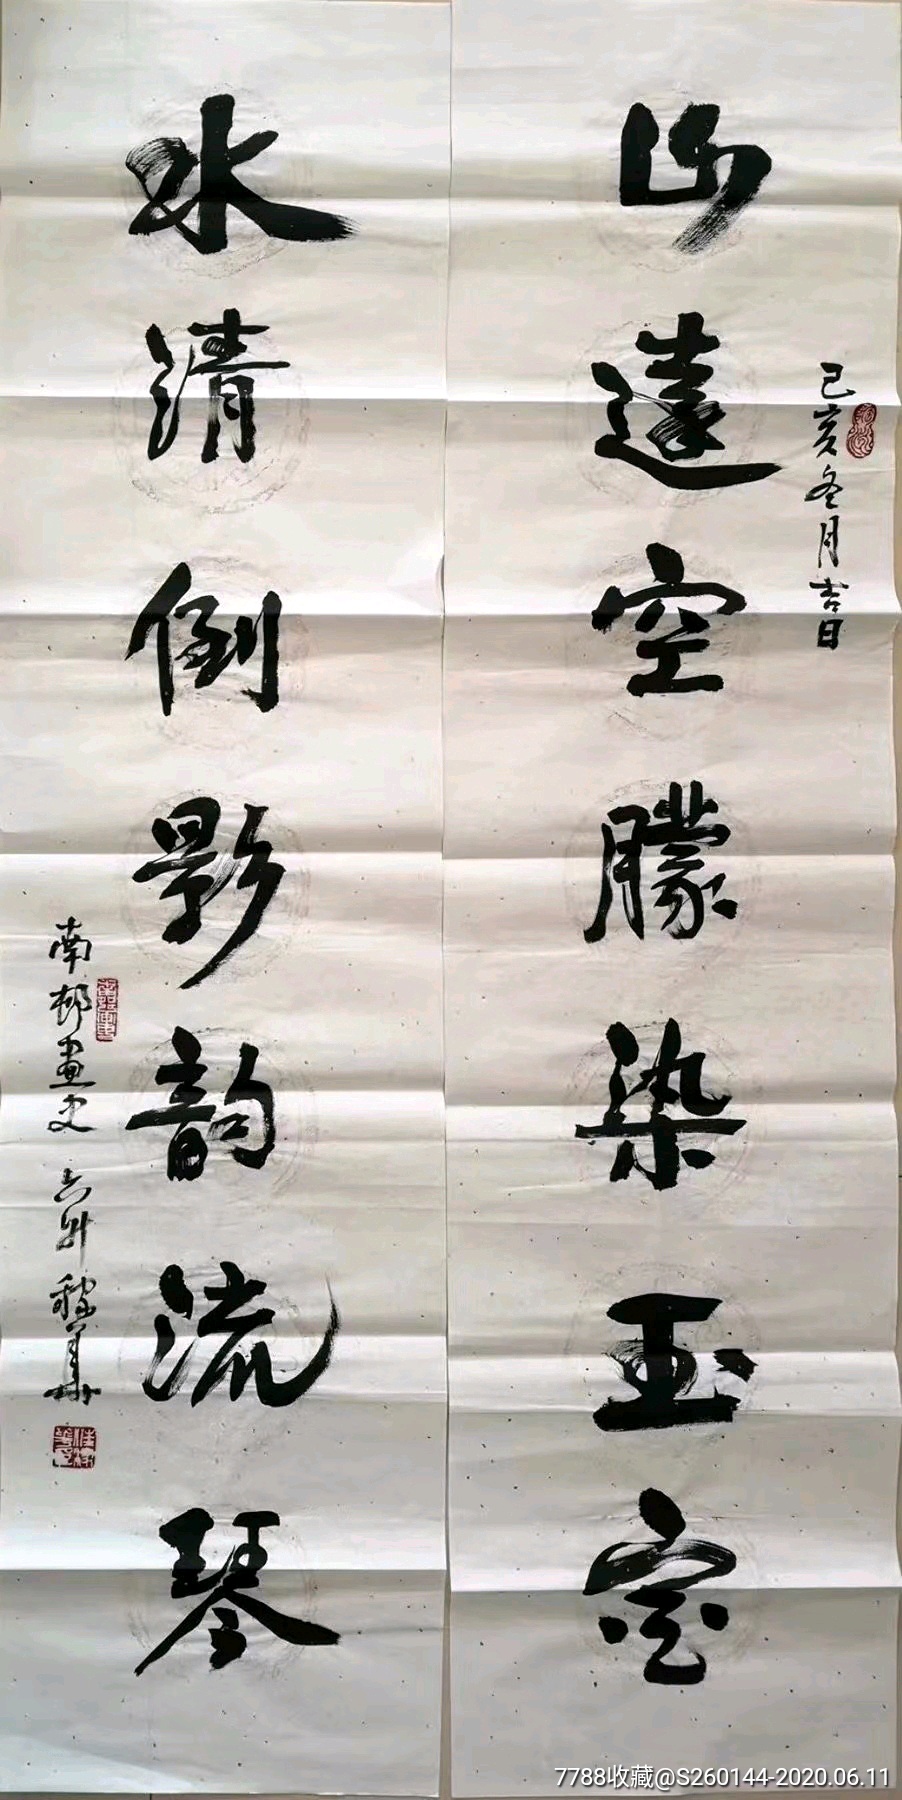 山遠空朦染玉密
己亥冬月吉日
水清倒影韵流琴
南邨画史
7788收藏@S260144-2020.06.11